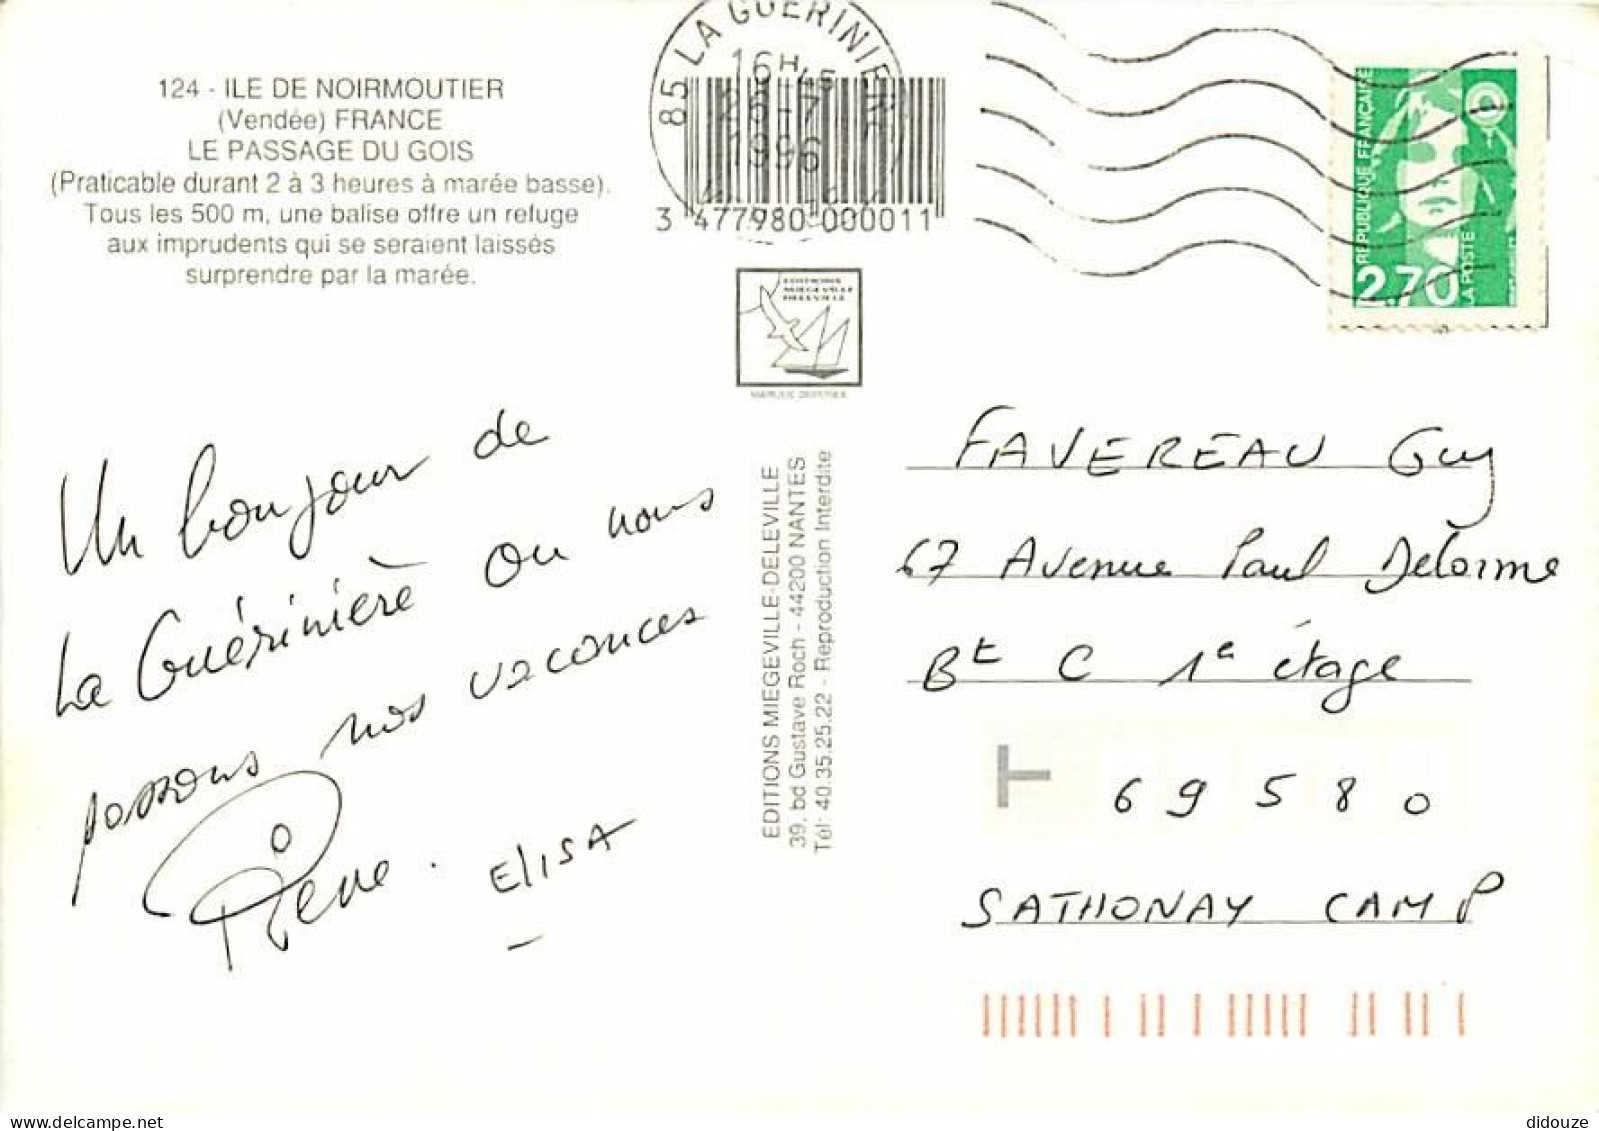 124 - ILE DE NOIRMOUTIER
(Vendée) FRANCE
LE PASSAGE DU GOIS
(Praticable durant 2 à 3 heures à marée basse).
Tous les 500 m, une balise offre un refuge
aux imprudents qui se seraient laissés
surprendre par la marée.
85 LA GUERINIERE
16H45
26-7
1996
3 477980 000011
REPUBLIQUE FRANÇAISE
2,70
LA POSTE
EDITIONS
MIEGEVILLE
DELEVILLE
MARQUE DEPOSEE
Un bonjour de
La Guérinière ou nous
passons nos vacances
Pierre. ElISA
EDITIONS MIEGEVILLE-DELEVILLE
39, bd Gustave Roch - 44200 NANTES
Tél: 40.35.25.22 - Reproduction Interdite
FAVEREAU Guy
67 Avenue Paul Delorme
Bt C 1e étage
69580
SATHONAY CAMP
didouze